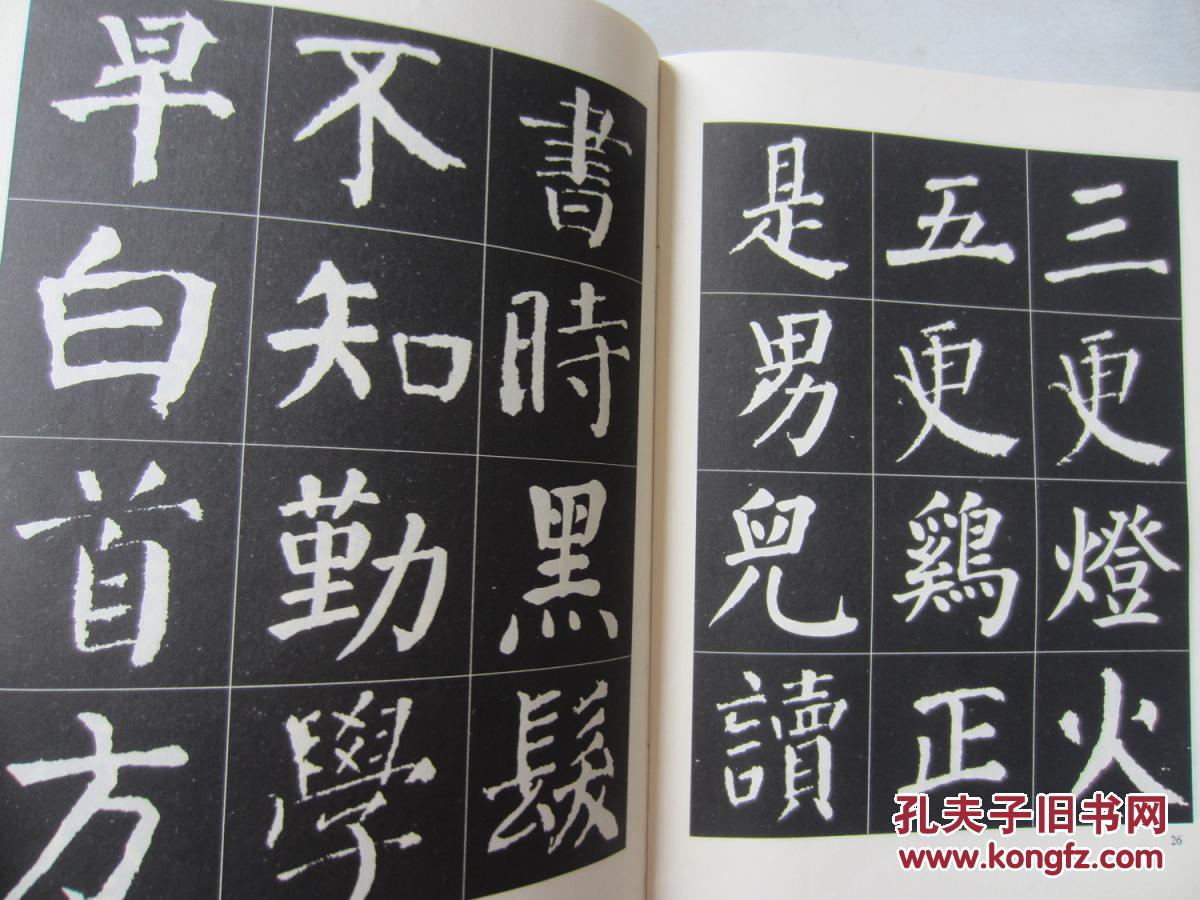 三更燈火
五更鷄正
是男兒讀
書時黑髮
不知勤學
早白首方
26
孔夫子旧书网
www.kongfz.com